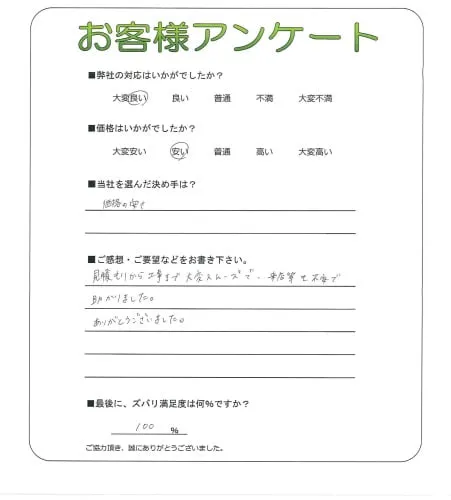 お客様アンケート
■弊社の対応はいかがでしたか？
大変良い 良い 普通 不満 大変不満
■価格はいかがでしたか？
大変安い 安い 普通 高い 大変高い
■当社を選んだ決め手は？
価格の安さ
■ご感想・ご要望などをお書き下さい。
見積もりから工事まで大変スムーズで、来店等も不要で
助かりました。
ありがとうございました。
■最後に、ズバリ満足度は何％ですか？
100 ％
ご協力頂き、誠にありがとうございました。